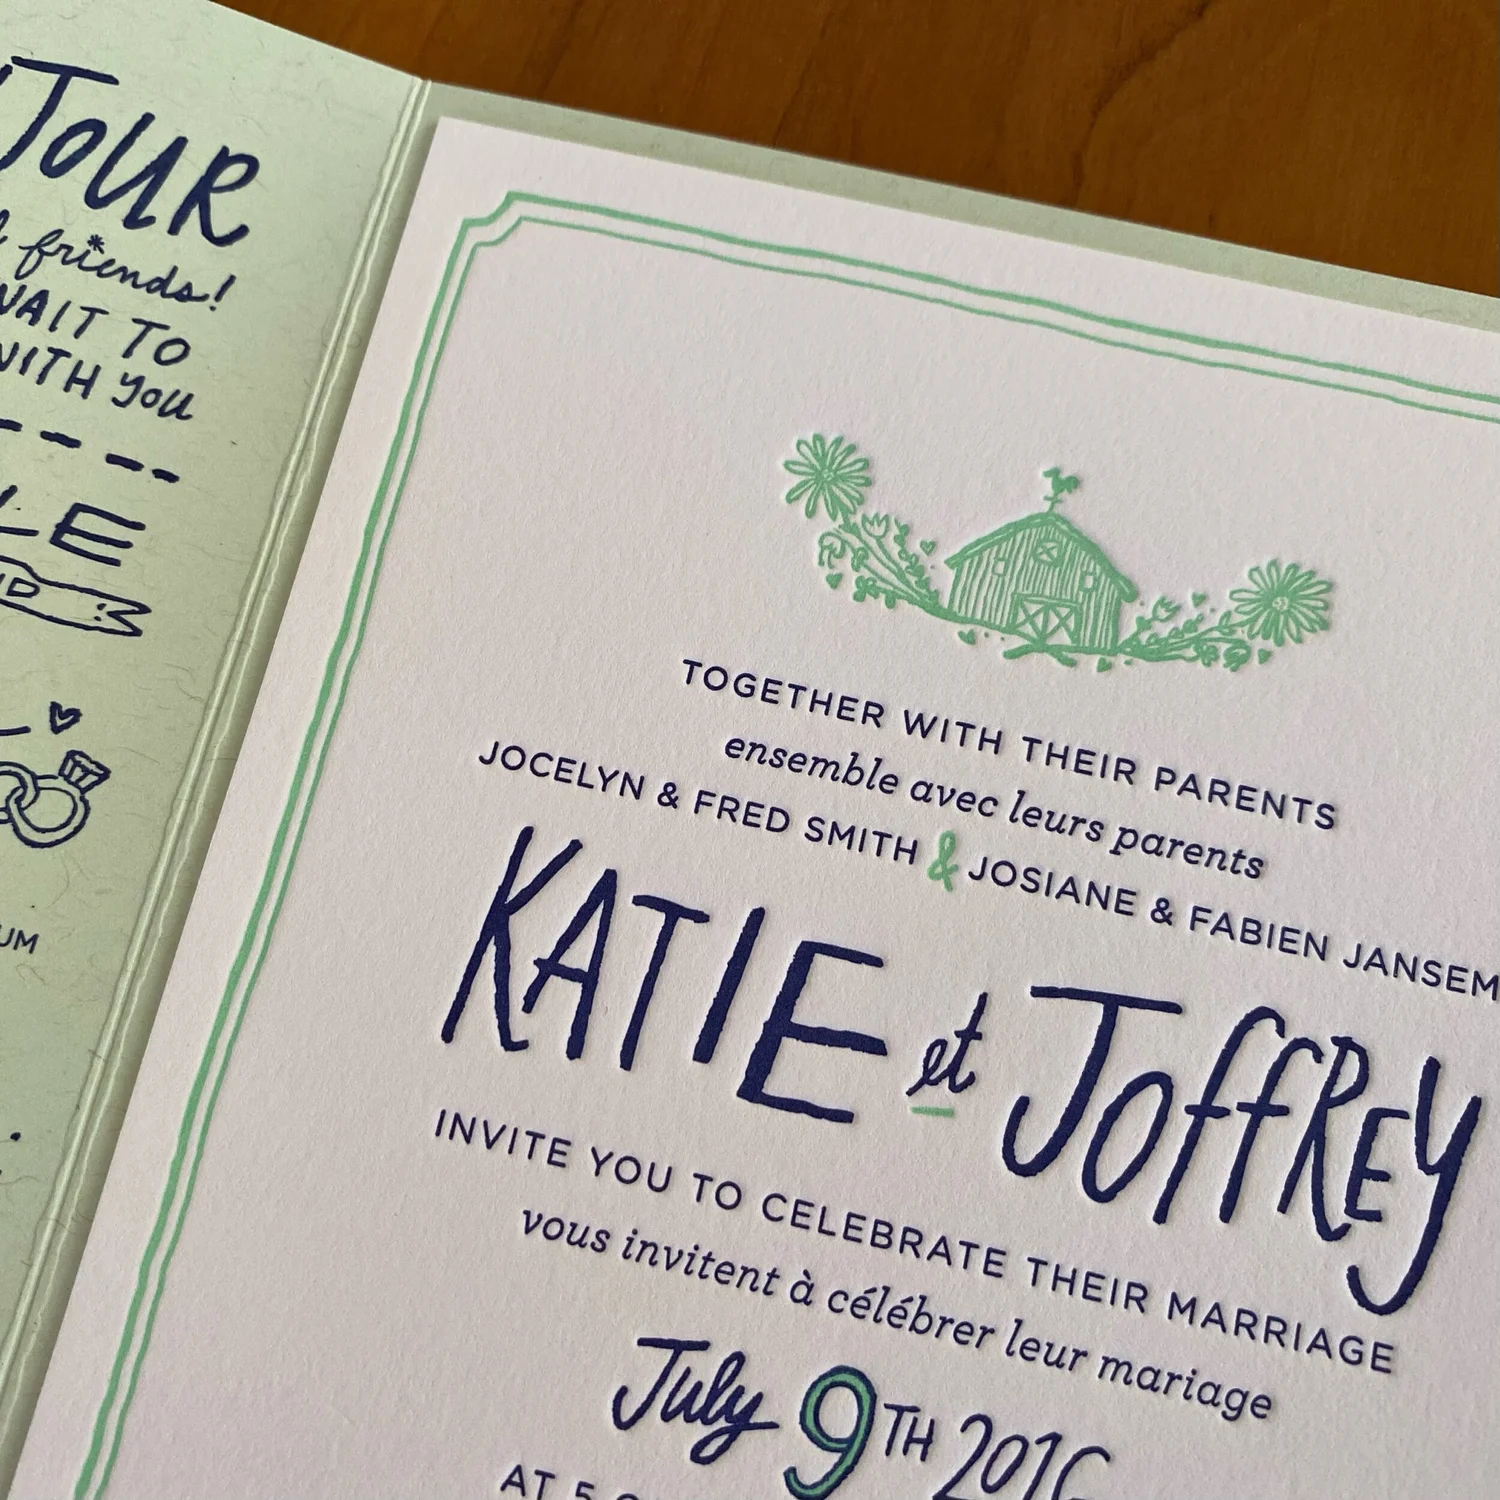 JOUR
friends!
WAIT TO
WITH you
LE
UM
TOGETHER WITH THEIR PARENTS
ensemble avec leurs parents
JOCELYN & FRED SMITH & JOSIANE & FABIEN JANSEM
KATIE et JOFFREY
INVITE YOU TO CELEBRATE THEIR MARRIAGE
vous invitent à célébrer leur mariage
July 9TH 2016
AT 5